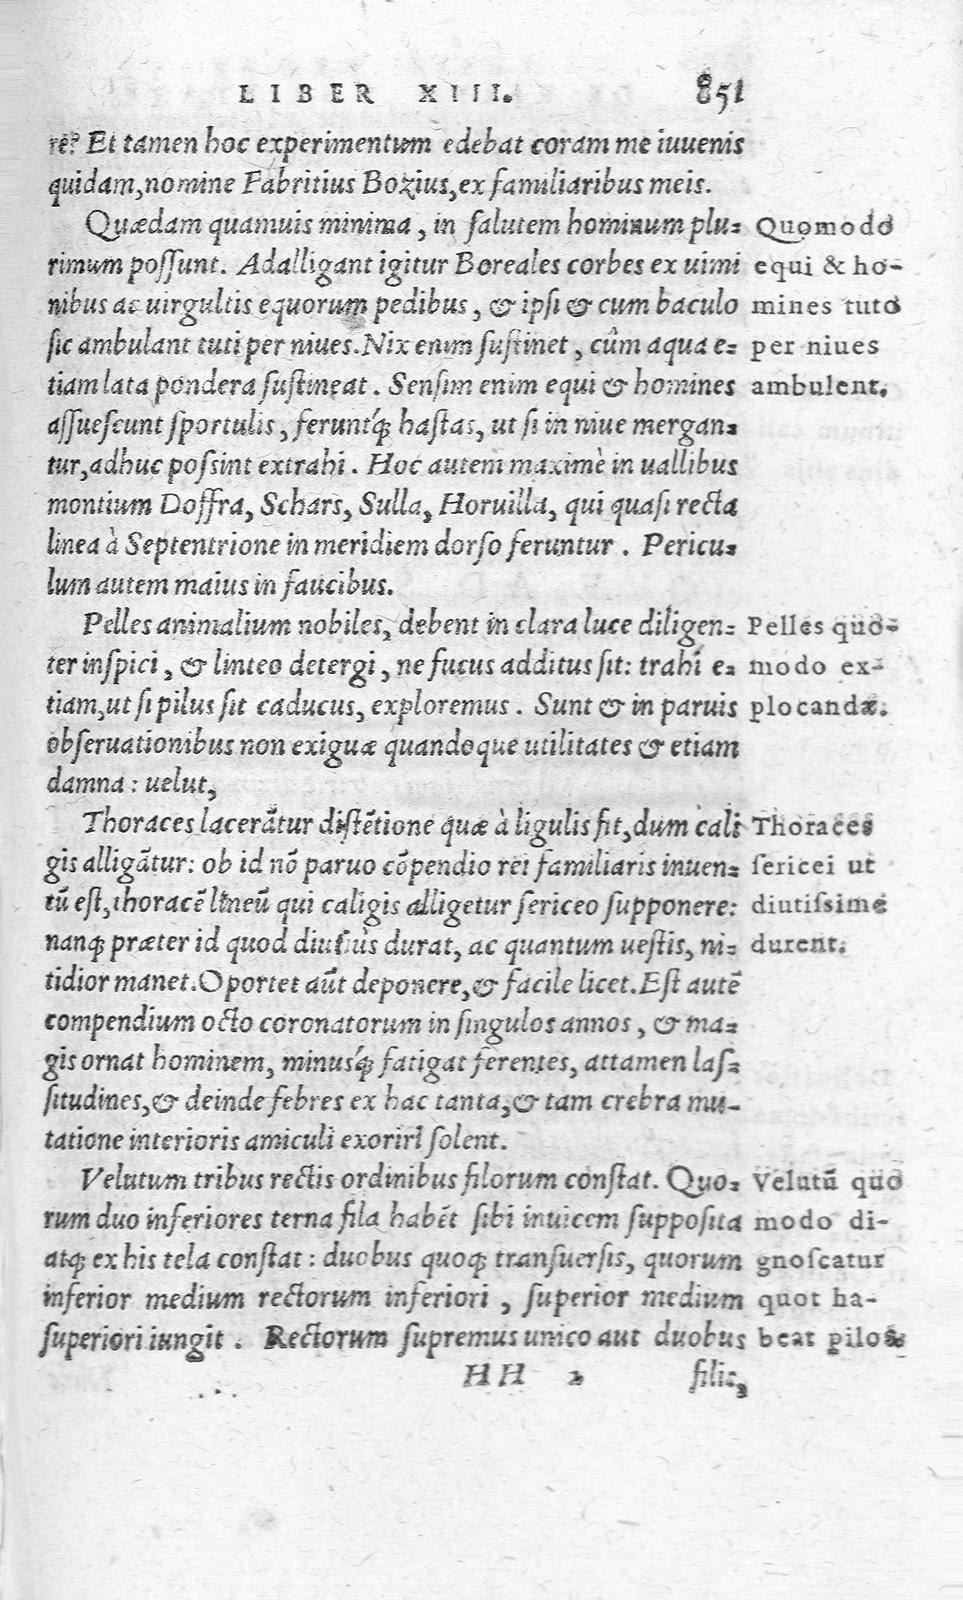 LIBER XIII. 851
rē? Et tamen hoc experimentum edebat coram me iuuenis
quidam, nomine Fabritius Bozius, ex familiaribus meis.
Quædam quamuis minima, in ſalutem hominum plu-
rimum poſſunt. Adalligant igitur Boreales corbes ex uimi
nibus ac uirgultis equorum pedibus, & ipſi & cum baculo
ſic ambulant tuti per niues. Nix enim ſuſtinet, cûm aqua e-
tiam lata pondera ſuſtineat. Senſim enim equi & homines
aſſueſcunt ſportulis, feruntq́; haſtas, ut ſi in niue mergan-
tur, adhuc poſsint extrahi. Hoc autem maximè in uallibus
montium Doffra, Schars, Sulla, Horuilla, qui quaſi recta
linea à Septentrione in meridiem dorſo feruntur. Pericu-
lum autem maius in faucibus.
Quomodo
equi & ho-
mines tuto
per niues
ambulent.
Pelles animalium nobiles, debent in clara luce diligen-
ter inſpici, & linteo detergi, ne fucus additus ſit: trahi e-
tiam, ut ſi pilus ſit caducus, exploremus. Sunt & in paruis
obſeruationibus non exiguæ quandoque utilitates & etiam
damna: uelut,
Pelles quo-
modo ex-
plocandæ.
Thoraces lacerātur diſtētione quæ à ligulis fit, dum cali
gis alligātur: ob id nō paruo cōpendio rei familiaris inuen-
tū eſt, thoracē lineū qui caligis alligetur ſericeo ſupponere:
nanq; præter id quod diutiùs durat, ac quantum ueſtis, ni-
tidior manet. Oportet aūt deponere, & facile licet. Eſt autē
compendium octo coronatorum in ſingulos annos, & ma-
gis ornat hominem, minusq́; fatigat ferentes, attamen laſ-
ſitudines, & deinde febres ex hac tanta, & tam crebra mu-
tatione interioris amiculi exoriri ſolent.
Thoraces
ſericei ut
diutiſsime
durent.
Velutum tribus rectis ordinibus filorum conſtat. Quo-
rum duo inferiores terna fila habēt ſibi inuicem ſuppoſita
atq; ex his tela conſtat: duobus quoq; tranſuerſis, quorum
inferior medium rectorum inferiori, ſuperior medium
ſuperiori iungit. Rectorum ſupremus unico aut duobus
Velutū quo
modo di-
gnoſcatur
quot ha-
beat pilos
HH 2 filis,